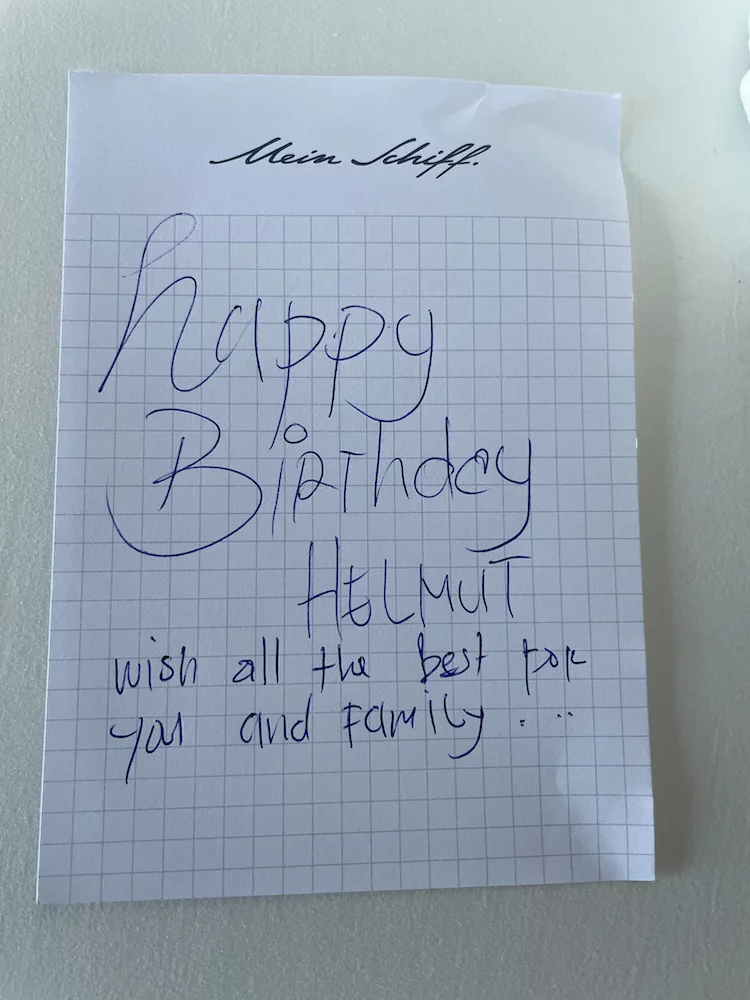 Mein Schiff.
happy
Birthday
HELMUT
wish all the best for
you and Family . ..